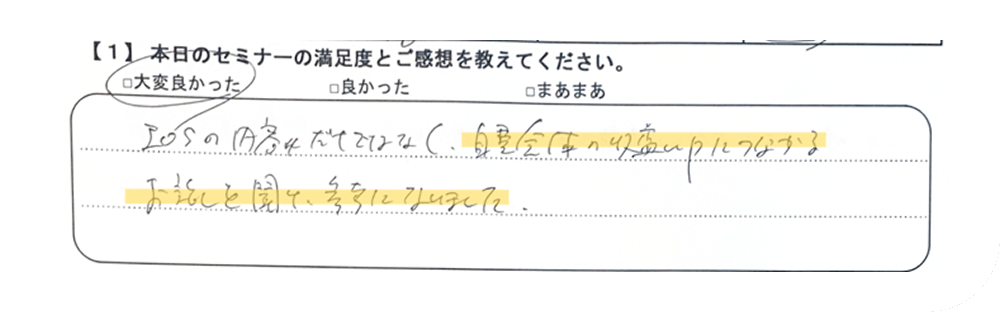 【1】 本日のセミナーの満足度とご感想を教えてください。
□大変良かった □良かった □まあまあ
IOSの内容だけではなく、自費全体の収益upにつながる
お話しを聞け、参考になりました。